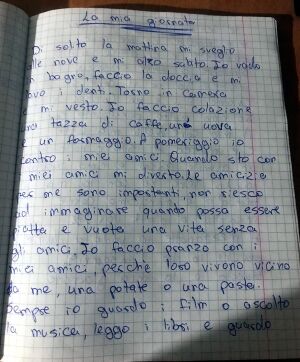 La mia giornata
Di solito la mattina mi sveglio
alle nove e mi alzo subito. Io vado
in bagno, faccio la doccia e mi
lavo i denti. Torno in camera
e mi vesto. Io faccio colazione
una tazza di caffe, una uova
e un formaggio. A pomeriggio io
contro i miei amici. Quando sto con
i miei amici mi diverto. Le amicizie
per me sono importanti, non riesco
ad immaginare quando possa essere
piatta e vuota una vita senza
gli amici. Io faccio pranzo con i
miei amici, perchè loro vivono vicino
da me, una patate o una pasta.
Sempre io guardo i film o ascolto
la musica, leggo i libri e guardo